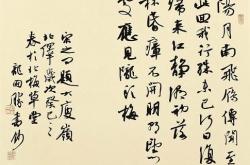 陽月南飛雁傳聞至
此回我行殊未已何日復
歸来江静潮初落
林昏瘴不開明朝望鄉
處應見隴頭梅
宋之問題大庾嶺
北驛歲次癸巳三
春於北梅草堂